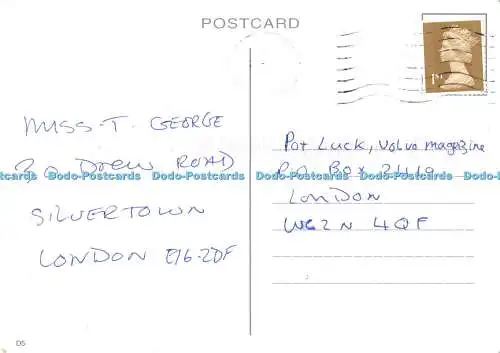 POSTCARD
1ST
MISS-T. GEORGE
DREW ROAD
SILVERTOWN
LONDON E16-2DF
Pot Luck, Volvo magazine
P.O. Box
LONDON
WC2N 4QF
Dodo-Postcards Dodo-Postcards Dodo-Postcards Dodo-Postcards Dodo-Postcards
DS